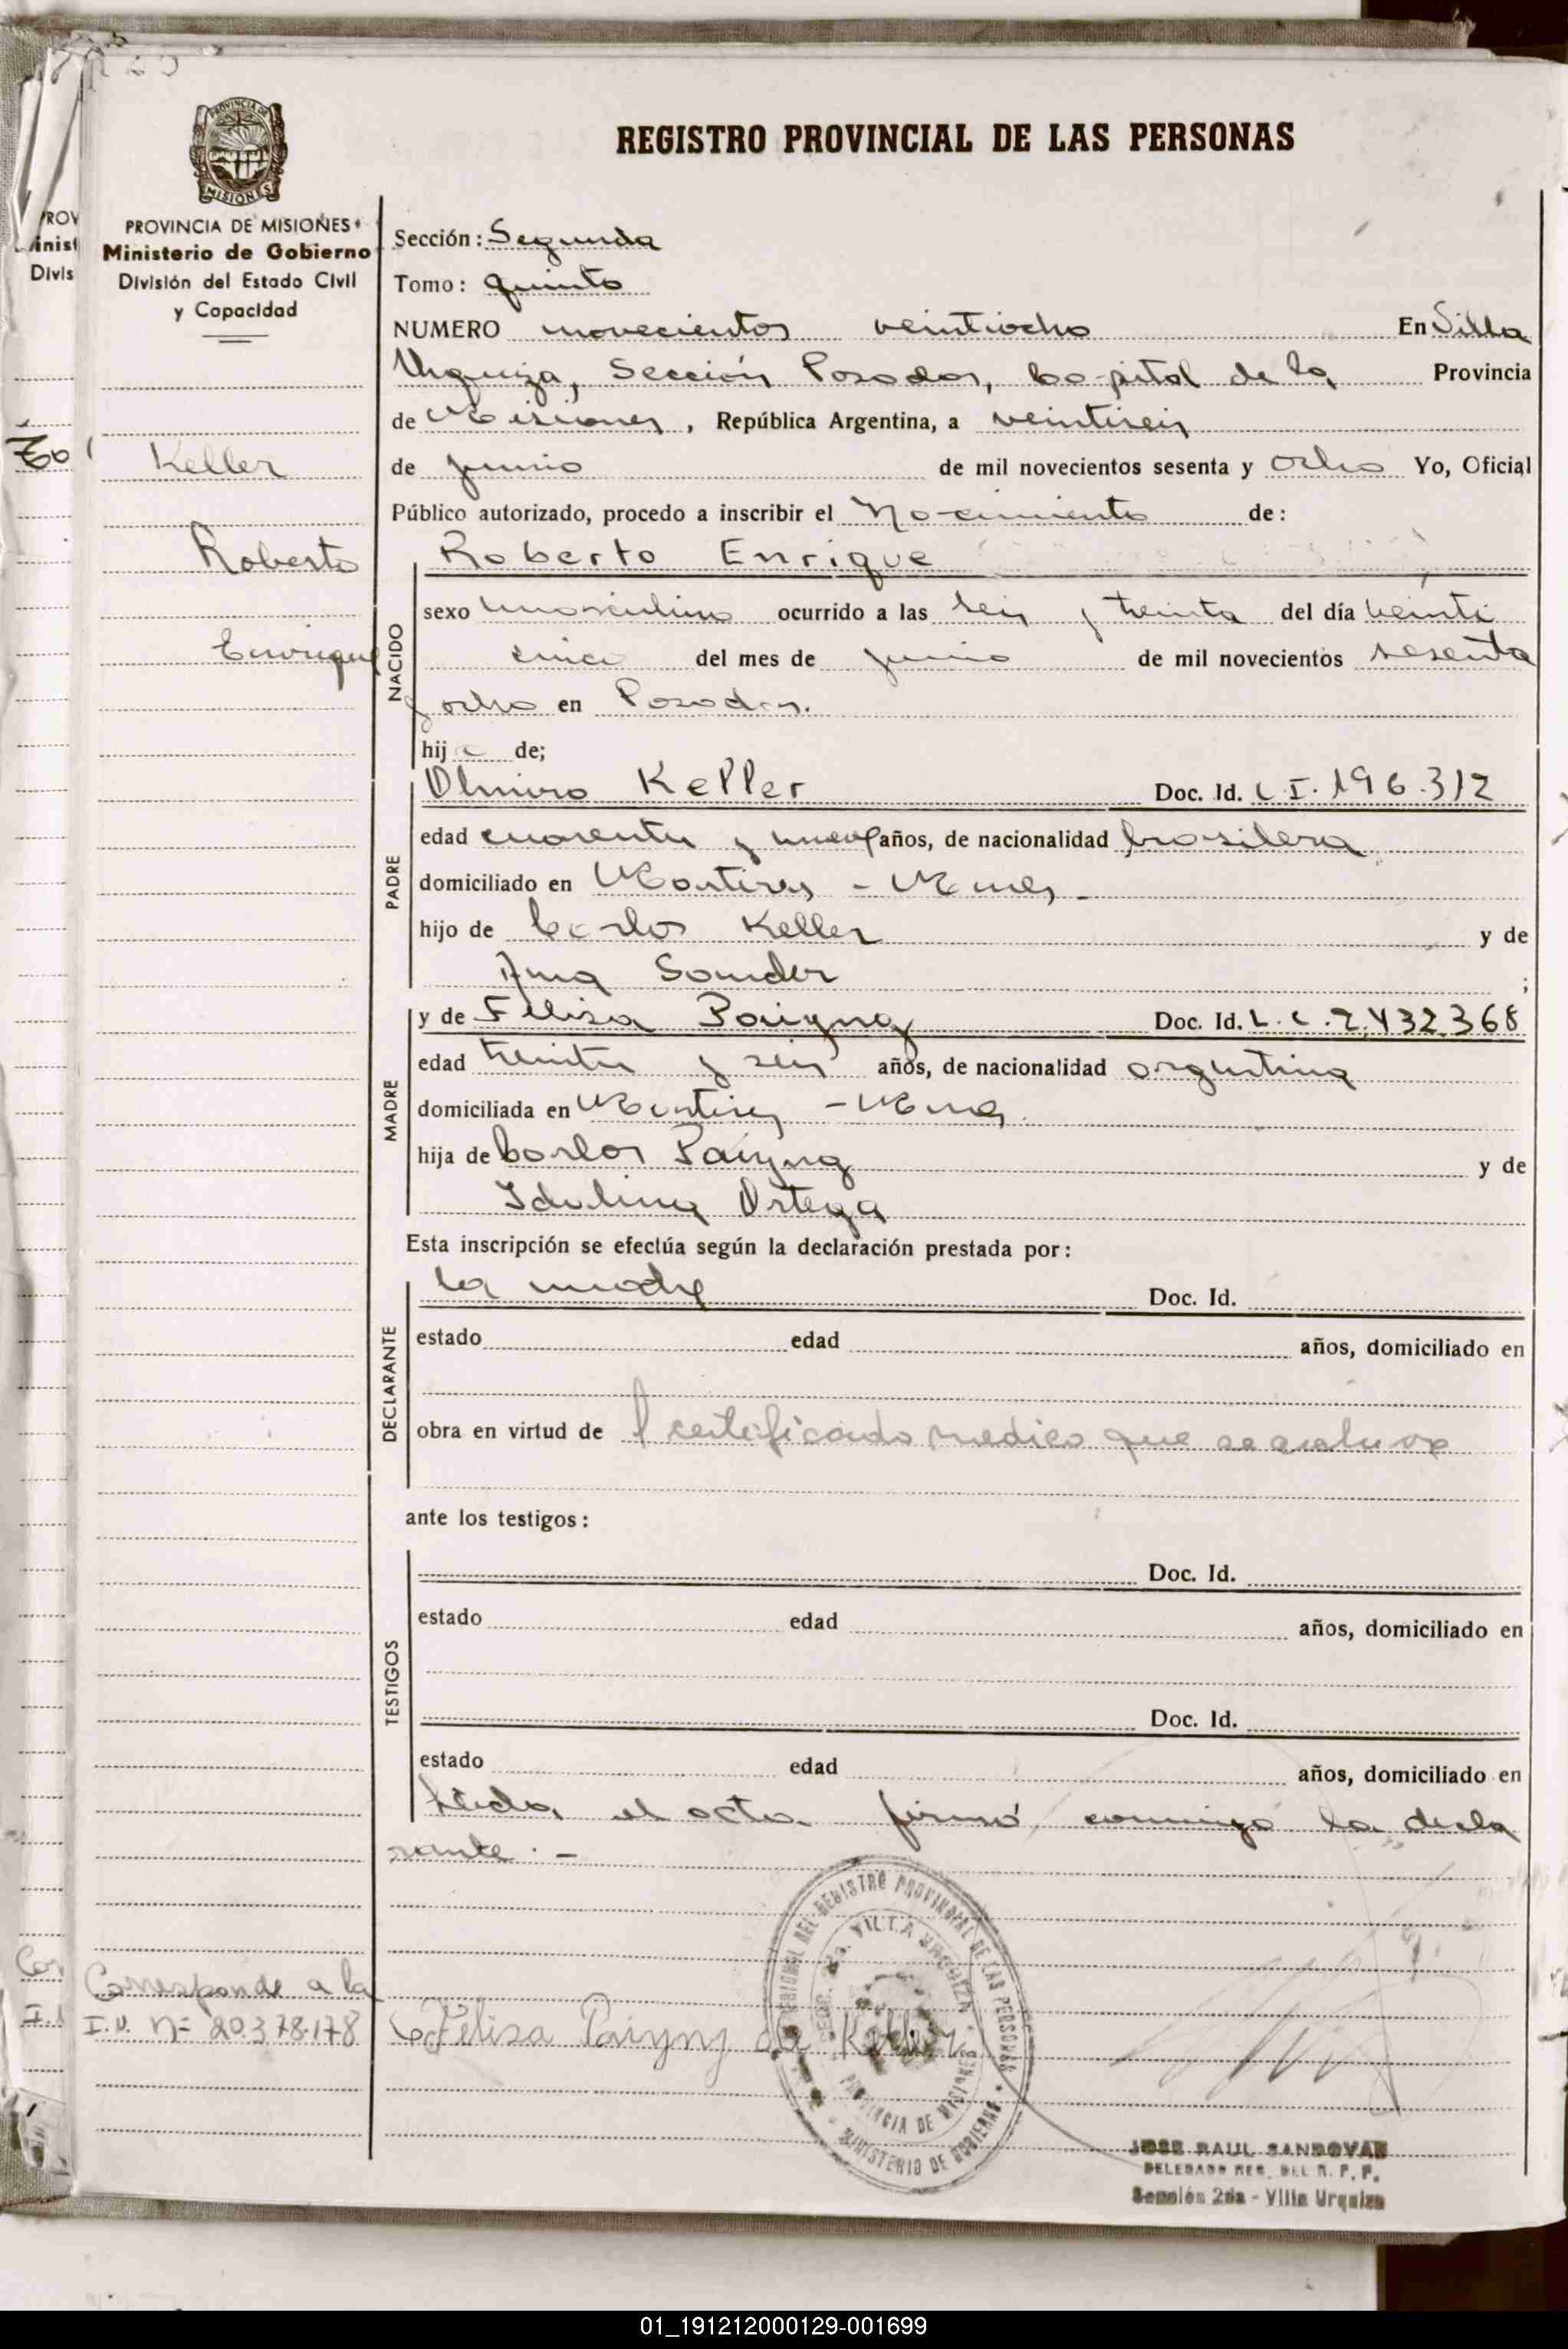 REGISTRO PROVINCIAL DE LAS PERSONAS
PROVINCIA DE MISIONES
PROVINCIA DE MISIONES
Ministerio de Gobierno
División del Estado Civil
y Capacidad
Keller
Roberto
Enrique
Sección: Segunda
Tomo: quinto
NUMERO novecientos veintiocho En Villa
Urquiza, Sección Posadas, Capital de la Provincia
de Misiones, República Argentina, a veintiseis
de junio de mil novecientos sesenta y ocho Yo, Oficial
Público autorizado, procedo a inscribir el Nacimiento de:
Roberto Enrique
NACIDO
sexo masculino ocurrido a las seis y treinta del día veinti
cinco del mes de junio de mil novecientos sesenta
y ocho en Posadas.
hijo de;
PADRE
Olmiro Keller Doc. Id. C.I. 196.312
edad cuarenta y nueve años, de nacionalidad brasilera
domiciliado en - Mnes -
hijo de Carlos Keller y de
Ana ;
MADRE
y de Feliza Doc. Id. L.C. 2.432.368
edad treinta y seis años, de nacionalidad argentina
domiciliada en - Mnes.
hija de Carlos y de
Idalina Ortega
Esta inscripción se efectúa según la declaración prestada por:
DECLARANTE
la madre Doc. Id.
estado edad años, domiciliado en
obra en virtud de l certificado medico que se archiva
ante los testigos:
TESTIGOS
Doc. Id.
estado edad años, domiciliado en
Doc. Id.
estado edad años, domiciliado en
Leida el acta firmó conmigo la decla
rante. -
Corresponde a la
I.U. Nº 20.378.178
Feliza de Keller
DEL REGISTRO PROVINCIAL DE LAS PERSONAS
VILLA URQUIZA
PROVINCIA DE MISIONES
MINISTERIO DE GOBIERNO
JOSE RAUL SANDOVAL
DELEGADO REG. DEL R. P. P.
Sección 2da - Villa Urquiza
01_191212000129-001699